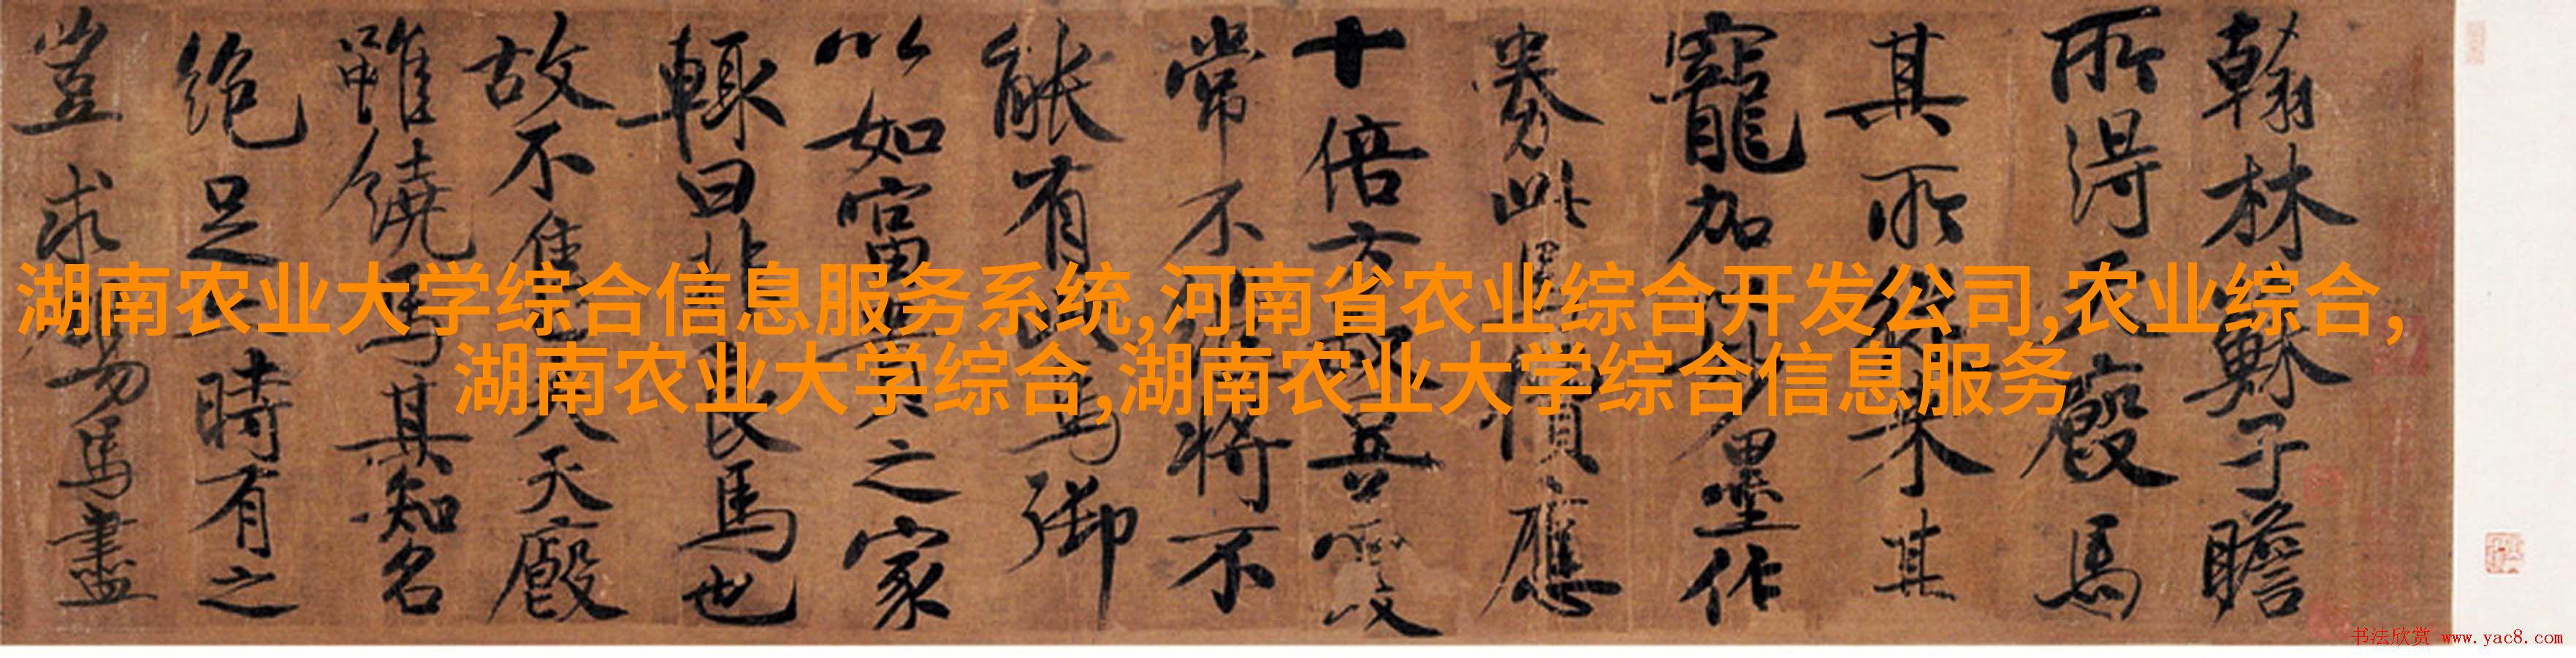 翰林蘇子瞻
所得天廄馬
其所從來甚
寵加以妙墨作
券此馬價應
十倍方叔豆羹
常不繼將不
能有此馬御
以如富貴之家
輒曰非良馬也
故不售夫天廄
雖饒馬其知名
絕足亦時有之
豈求賜馬盡
湖南农业大学综合信息服务系统,河南省农业综合开发公司,农业综合,
湖南农业大学综合,湖南农业大学综合信息服务
书法欣赏 www.yac8.com